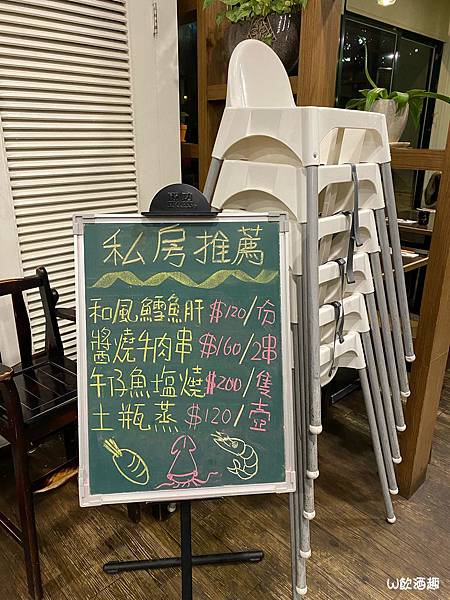 私房推薦
和風鱈魚肝 $120/份
醬燒牛肉串 $160/2串
午仔魚塩燒 $200/隻
土瓶蒸 $120/壺
W飲酒趣